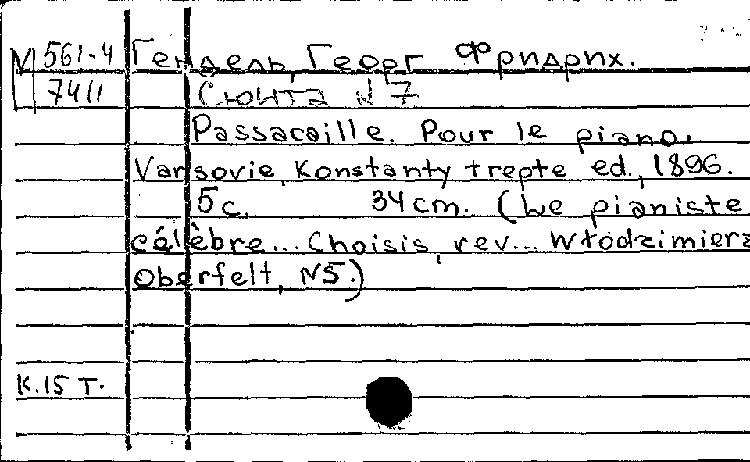 М 561-4 Гендель, Георг Фридрих.
74/1 Сюита N 7
Passacaille. Pour le piano.
Varsovie, Konstanty trepte ed., 1896.
5 с. 34 cm. (Le pianiste
célèbre... Choisis, rev... Włodzimierz
Oberfelt, N5.)
К.15 т.